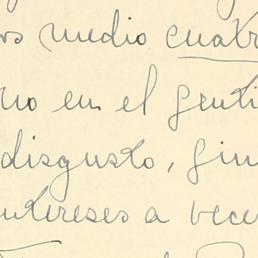 os medio cuatr
no en el genti
disgusto, gin
ntereses a vece